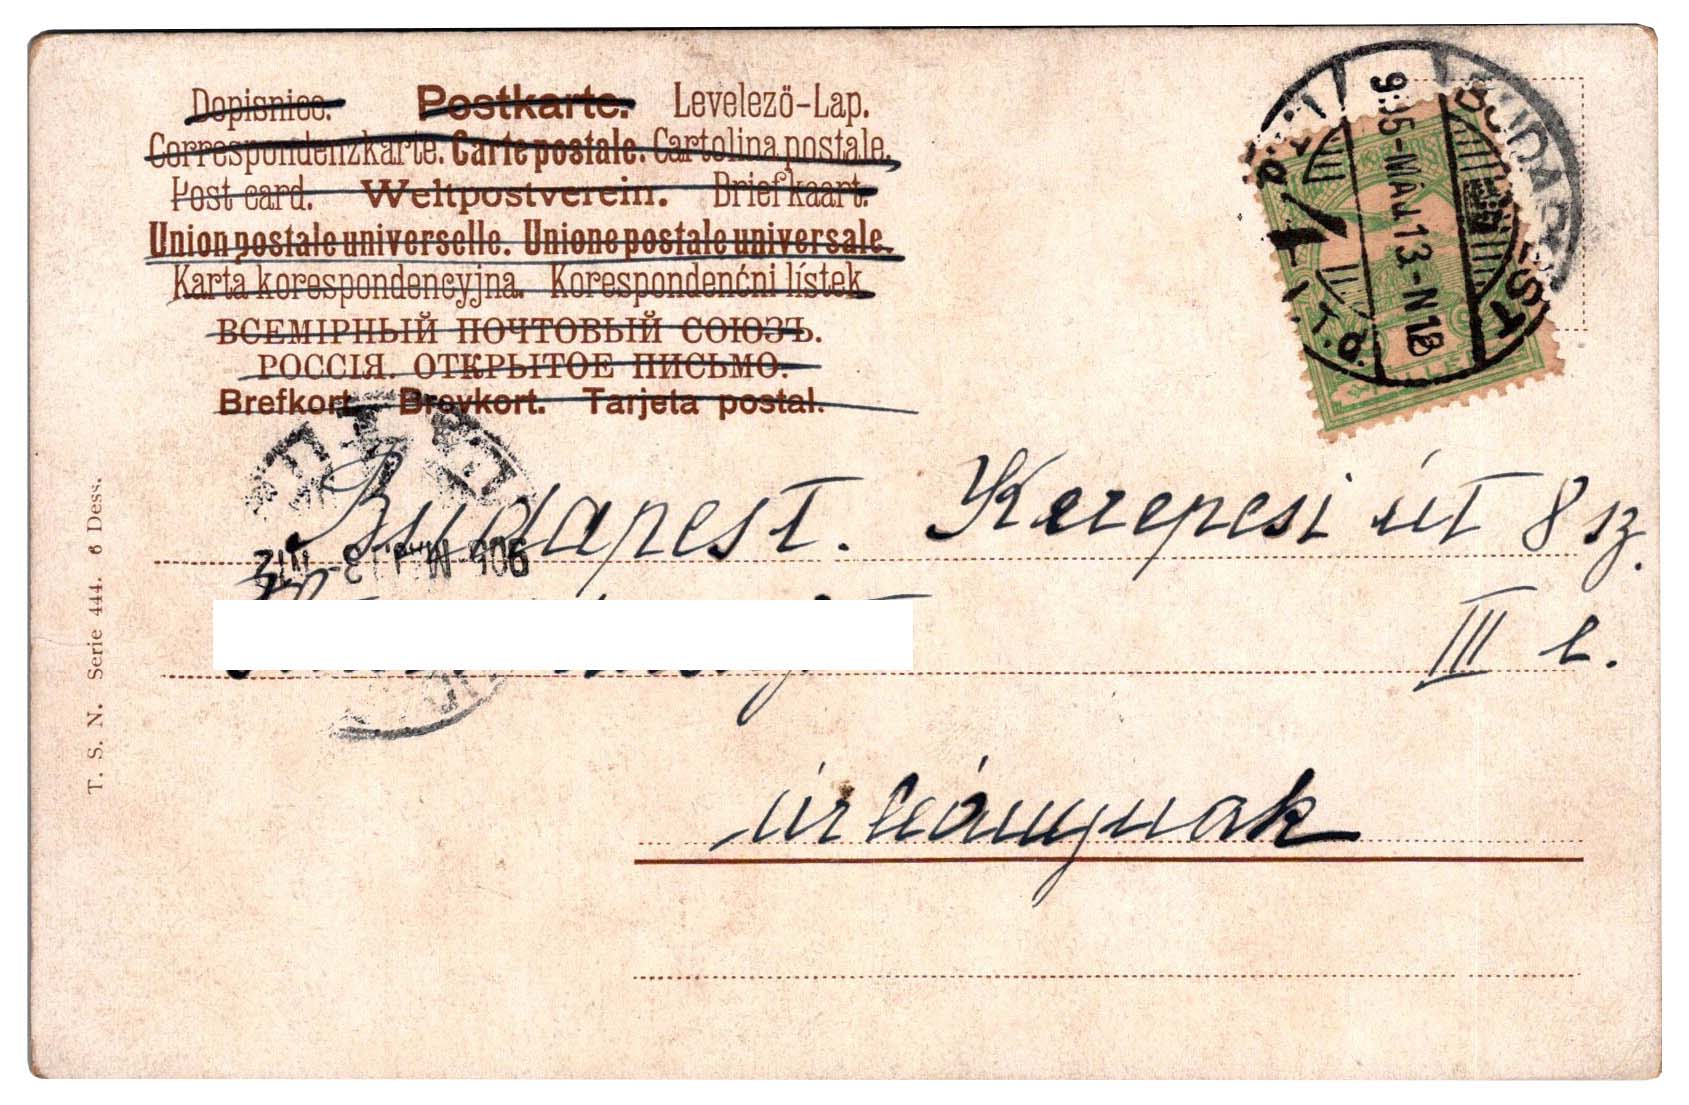 Dopisnice. Postkarte. Levelező-Lap.
Correspondenzkarte. Carte postale. Cartolina postale.
Post card. Weltpostverein. Briefkaart.
Union postale universelle. Unione postale universale.
Karta korespondencyjna. Korespondenćni lístek.
ВСЕМІРНЫЙ ПОЧТОВЫЙ СОЮЗЪ.
РОССІЯ. ОТКРЫТОЕ ПИСЬМО.
Brefkort. Brevkort. Tarjeta postal.
BUDAPEST
905-MÁJ 13-N
Budapest. Kerepesi út 8 sz.
III e.
úrleánynak
T. S. N. Serie 444. 6 Dess.